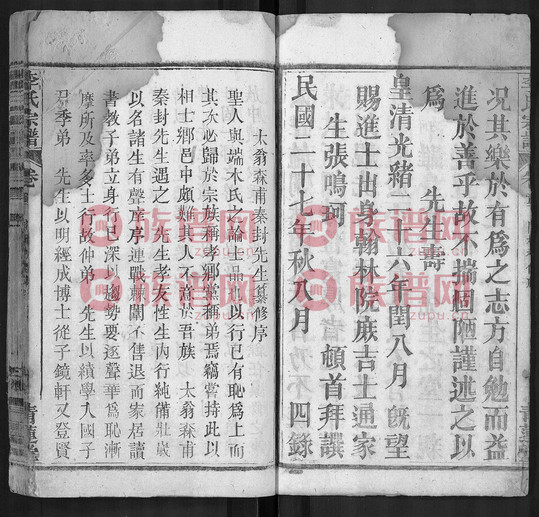 況其樂於有為之志方自勉而益
進於善乎故不揣固陋謹述之以
為　先生壽
皇清光緒二十六年閏八月既望
賜進士出身翰林院庶吉士通家
生張鳴珂　頓首拜譔
民國二十七年秋八月　四錄
太翁森甫秦封先生纂修序
聖人與端木氏之論士品以行己有恥為上而
其次必歸於宗族稱孝鄉黨稱弟焉竊嘗持此以
相士鄉邑中頗難其人不意於吾族　太翁森甫
秦封先生遇之　先生孝友性生內行純備壯歲
以名諸生有聲庠序連戰棘闈不售退而家居讀
書教子弟立身行己深以趨勢要逐聲華為恥漸
摩所及率多士行故仲弟　先生以績學入國子
季弟　先生以明經成博士從子鏡軒又登賢
李氏宗譜
卷
青蓮堂
族谱网
zupu.cn
族谱网
zupu.cn
族谱网
zupu.cn
族谱网
zupu.cn